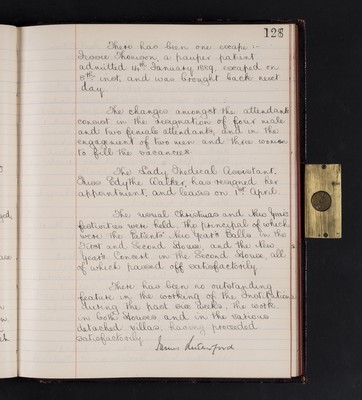 128
There has been one escape :-
Jessie Thomson, a pauper patient
admitted 14th January 1889, escaped on
5th inst, and was brought back next
day
The changes amongst the attendants
consist in the resignation of four male
and two female attendants, and in the
engagement of two men and three women
to fill the vacancies.
The Lady Medical Assistant,
Miss Edythe Walker, has resigned her
appointment, and leaves on 1st April
The usual Christmas and New Year's
festivities were held. The principal of which
were the Patients' New Year's Balls in the
First and Second Houses, and the New
Year's Concert in the Second House, all
of which passed off satisfactorily.
There has been no outstanding
feature in the working of the Institution
during the past six weeks, the work
in both Houses and in the various
detached villas, having proceeded
satisfactorily
James Rutherford